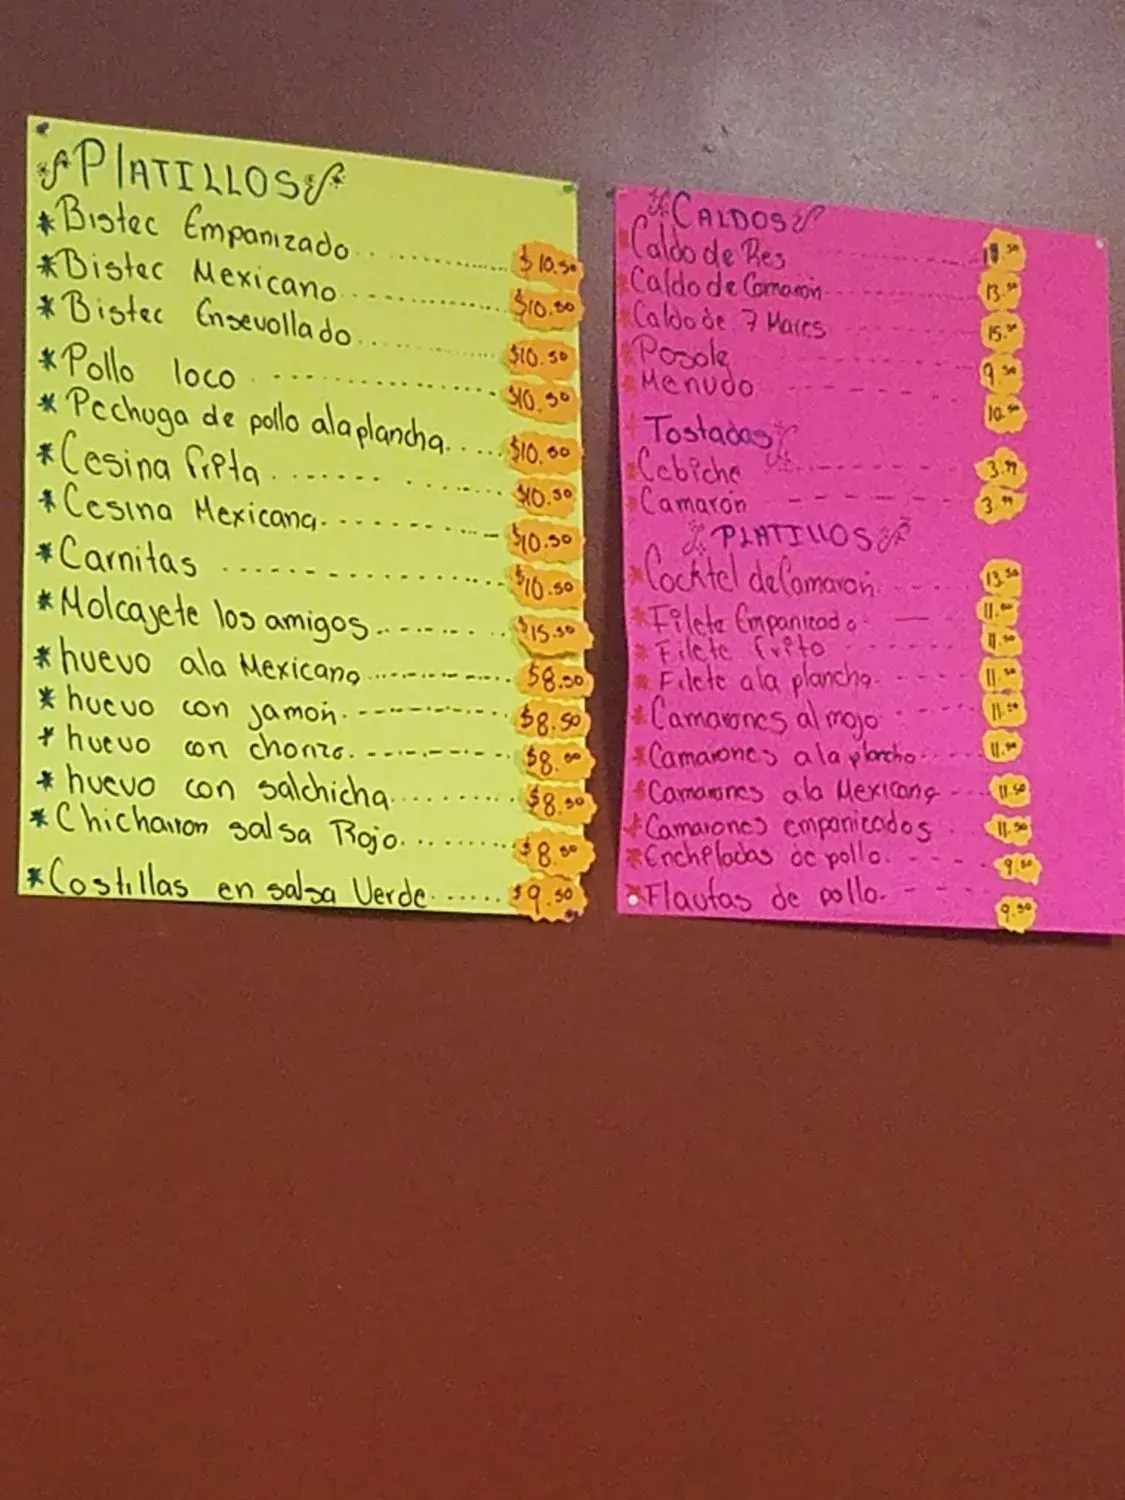 PLATILLOS
*Bistec Empanizado............ $10.50
*Bistec Mexicano............ $10.50
*Bistec Ensevollado............ $10.50
*Pollo loco............ $10.50
*Pechuga de pollo alaplancha...... $10.50
*Cesina frita............ $10.50
*Cesina Mexicana............ $10.50
*Carnitas............ $10.50
*Molcajete los amigos............ $15.50
*huevo ala Mexicano............ $8.50
*huevo con jamon............ $8.50
*huevo con chorizo............ $8.50
*huevo con salchicha............ $8.50
*Chicharron salsa Rojo............ $8.50
*Costillas en salsa Verde...... $9.50
CALDOS
*Caldo de Res
*Caldo de Camaron 13.50
*Caldo de 7 Mares 15.50
*Posole 9.50
*Menudo 10.50
Tostadas
*Cebiche 3.99
*Camarón 3.99
PLATILLOS
*Cocktel de Camaron 13.50
*Filete Empanizado 11.50
*Filete frito 11.50
*Filete a la plancha 11.50
*Camarones al mojo 11.50
*Camarones a la plancha 11.50
*Camarones ala Mexicana 11.50
*Camarones empanizados 11.50
*Enchiladas de pollo. 9.50
*Flautas de pollo. 9.50